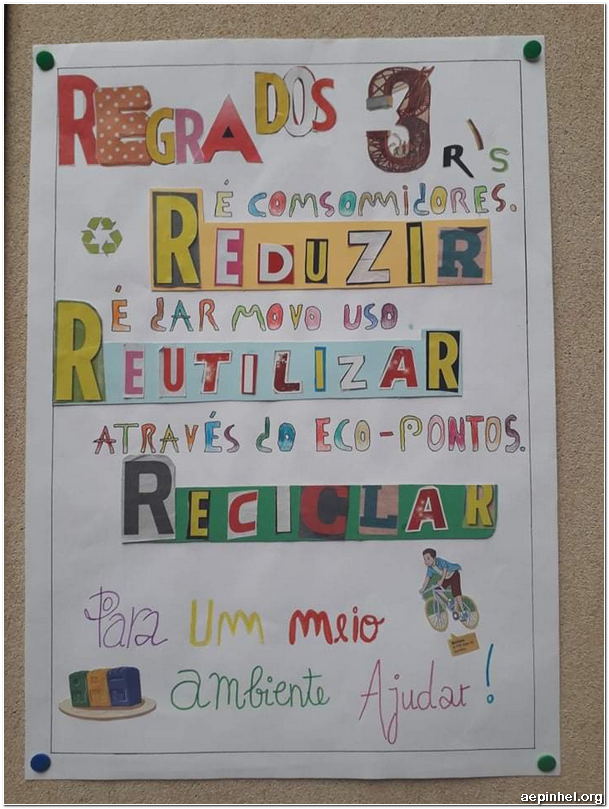 REGRA DOS 3 R'S
É COMSOMMIDORES.
REDUZIR
É DAR MOVO USO.
REUTILIZAR
ATRAVÉS DO ECO-PONTOS.
RECICLAR
Para Um meio
ambiente Ajudar!
aepinhel.org